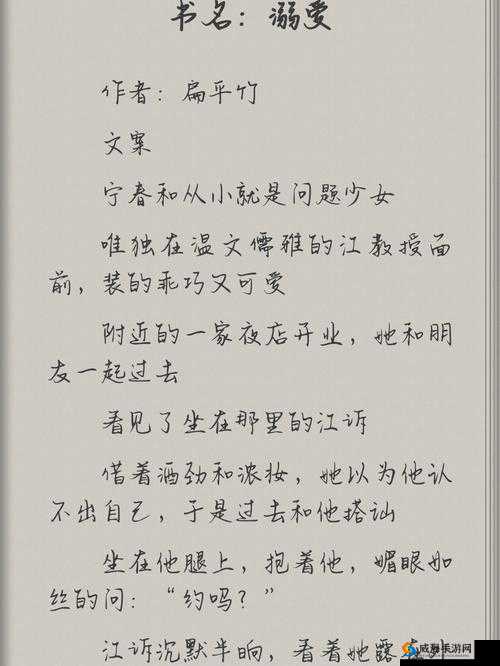 书名：溺爱
作者：扁平竹
文案
宁春和从小就是问题少女
唯独在温文儒雅的江教授面
前，装的乖巧又可爱
附近的一家夜店开业，她和朋
友一起过去
看见了坐在那里的江诉
借着酒劲和浓妆，她以为他认
不出自己，于是过去和他搭讪
坐在他腿上，抱着他，媚眼如
丝的问：“约吗？”
江诉沉默半晌，看着她露在外
威海手游网